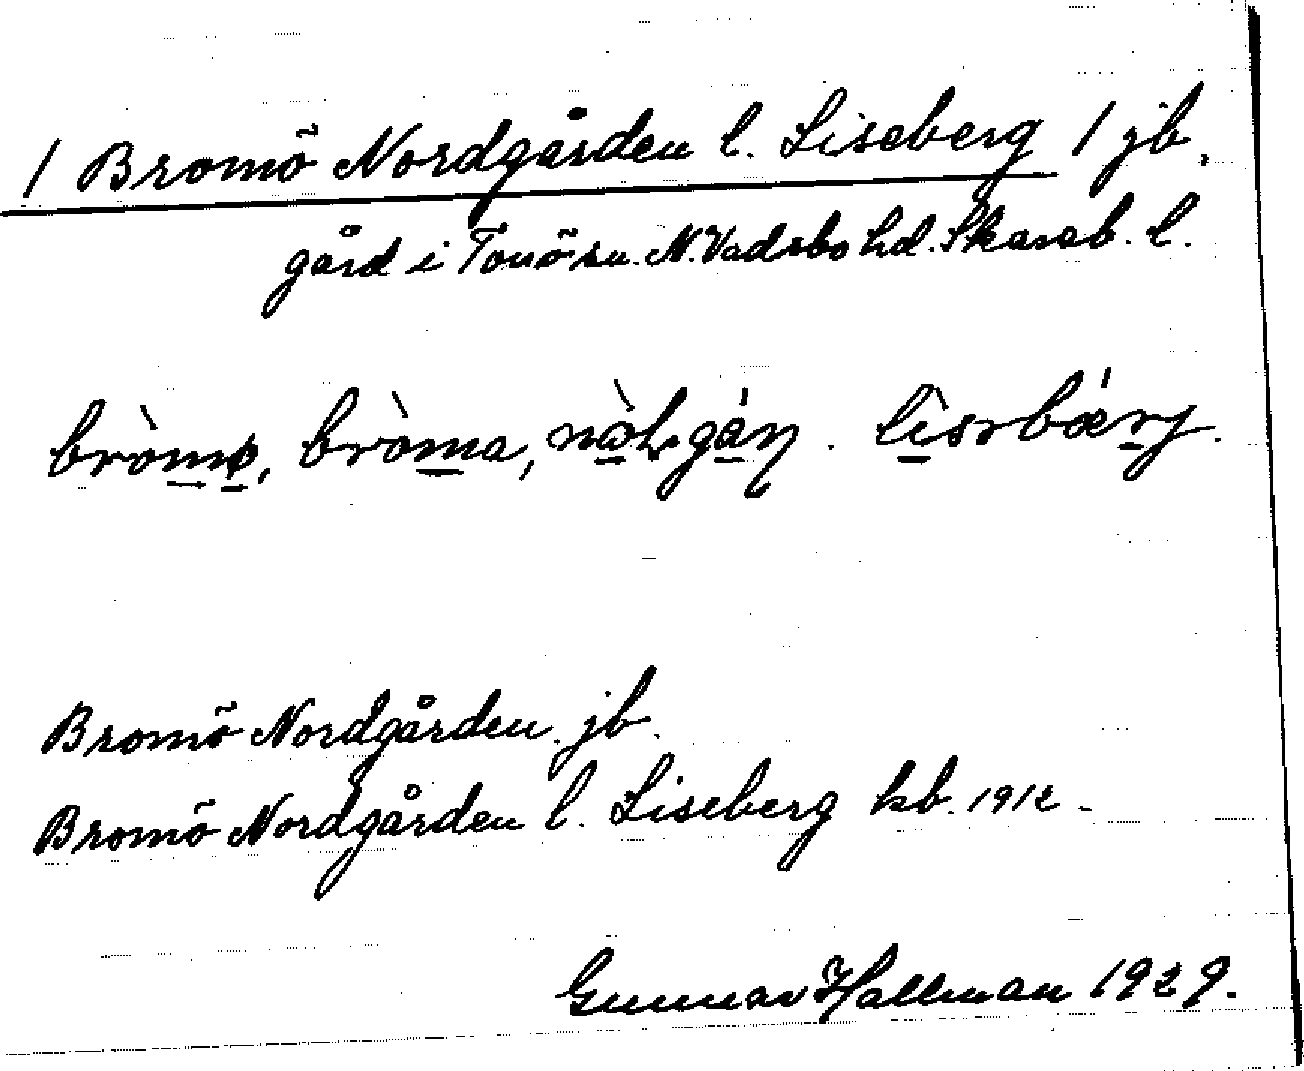 / Bromö Nordgården l. Liseberg / jb.
gård i Torsö sn. N. Vadsbo hd. Skarab. l.
bròmø, bròma, nɷ̀ɽgàṇ. lìsɘbǽrj.
Bromö Nordgården jb.
Bromö Nordgården l. Liseberg kb. 1912.
Gunnar Hallman 1929.